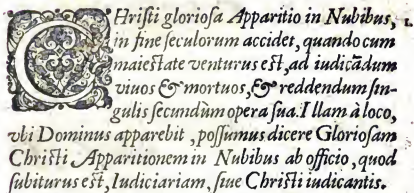 CHriſti glorioſa Apparitio in Nubibus,
in fine ſeculorum accidet, quando cum
maieſtate venturus eſt, ad iudicādum
viuos & mortuos, & reddendum ſin-
gulis ſecundùm opera ſua. Illam à loco,
vbi Dominus apparebit, poſſumus dicere Glorioſam
Chriſti Apparitionem in Nubibus ab officio, quod
ſubiturus eſt, Iudiciariam, ſiue Chriſti iudicantis.